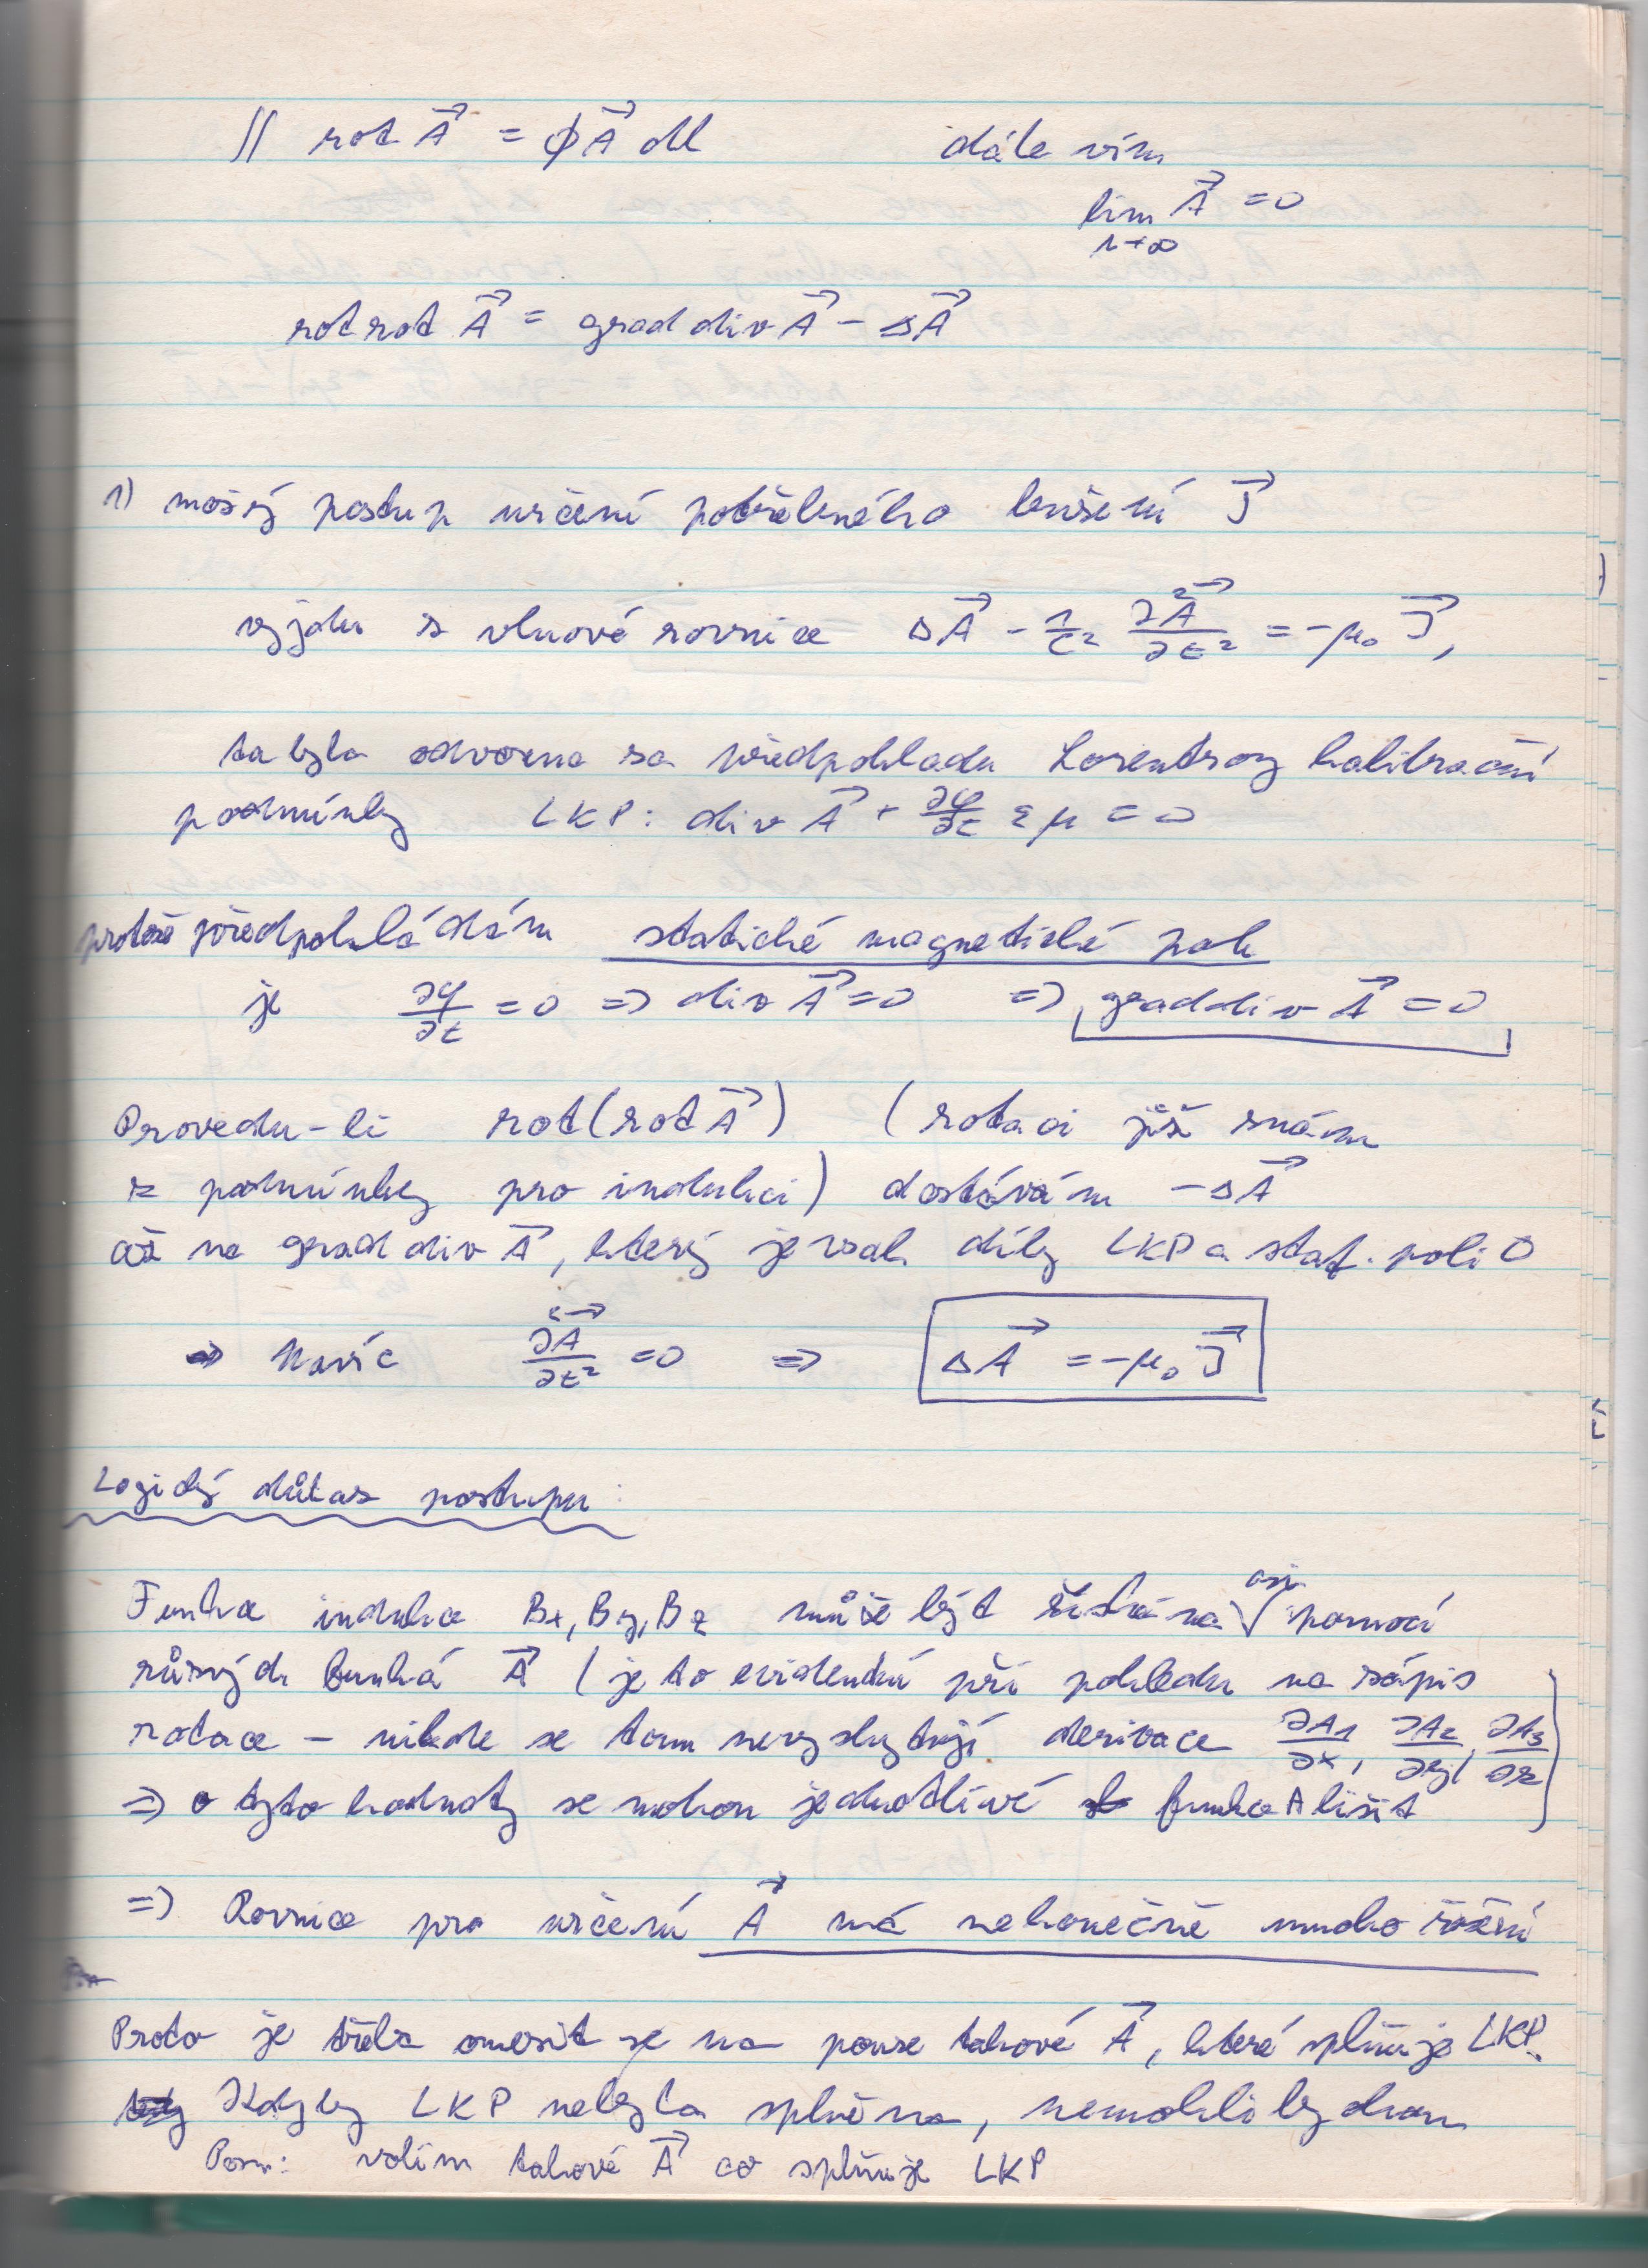 ∬ rot A⃗ = ∮ A⃗ dl dále vím
lim A⃗ = 0
r→∞
rot rot A⃗ = grad div A⃗ − ΔA⃗
1) možný postup určení potřebného buzení J⃗
vyjdu z vlnové rovnice ΔA⃗ − 1/c² ∂²A⃗/∂t² = −μ₀ J⃗,
ta byla odvozena za předpokladu Lorentzovy kalibrační
podmínky LKP: div A⃗ + ∂φ/∂t εμ = 0
protože předpokládám statické magnetické pole
je ∂φ/∂t = 0 ⇒ div A⃗ = 0 ⇒ grad div A⃗ = 0
Provedu-li rot(rot A⃗) (rotaci již znám
z podmínky pro indukci) dostávám −ΔA⃗
až na grad div A⃗, který je však díky LKP a stat. poli 0
⇒ Navíc ∂²A⃗/∂t² = 0 ⇒ ΔA⃗ = −μ₀ J⃗
Logický důkaz postupu:
Funkce indukce Bx, By, Bz může být získána asi pomocí
různých funkcí A⃗ (je to evidentní při pohledu na zápis
rotace – nikde se tam nevyskytují derivace ∂A₁/∂x, ∂A₂/∂y, ∂A₃/∂z
⇒ o tyto hodnoty se mohou jednotlivé funkce A lišit)
⇒ Rovnice pro určení A⃗ má nekonečně mnoho řešení
Proto je třeba omezit se na pouze takové A⃗, které splňuje LKP.
Kdyby LKP nebyla splněna, nemohli bychom
Pozn: volím takové A⃗ co splňuje LKP